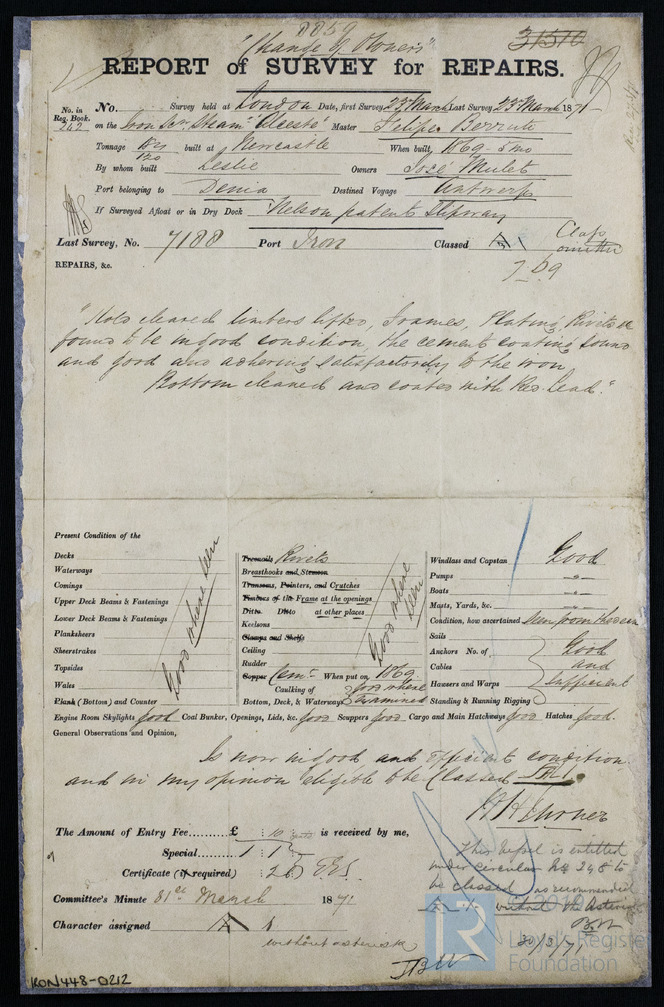 8859
31510
"Change of Owners"
REPORT of SURVEY for REPAIRS.
No. in Reg. Book. 242
No. Survey held at London Date, first Survey 23rd March Last Survey 23rd March 1871
on the Iron Scr. Steamr "Alceste" Master Felipe Berruti
Tonnage built at Newcastle When built 1869 - 5mo
By whom built Leslie Owners José Mulet
Port belonging to Denia Destined Voyage Antwerp
If Surveyed Afloat or in Dry Dock Nelson patent Slipway
Last Survey, No. 7188 Port Iron Classed A1 Class omitted
7 69
REPAIRS, &c.
"Hold cleared limbers lifted, Frames, Plating, Rivets &c
found to be in good condition, the cement coating sound
and good and adhering satisfactorily to the iron,
Bottom cleaned and coated with Red lead."
Present Condition of the
Decks
Waterways
Comings
Upper Deck Beams & Fastenings
Lower Deck Beams & Fastenings
Planksheers
Sheerstrakes
Topsides
Wales
Plank (Bottom) and Counter
Good where seen
Treenails Rivets
Breasthooks and Stemson
Transoms, Pointers, and Crutches
Timbers of the Frame at the openings
Ditto Ditto at other places
Keelsons
Clamps and Shelfs
Ceiling
Rudder
Copper Cemt. When put on 1869
Caulking of Bottom, Deck, & Waterways good where examined
Good where seen
Windlass and Capstan Good
Pumps -"-
Boats -"-
Masts, Yards, &c. -"-
Condition, how ascertained seen from the deck
Sails
Anchors No. of
Cables
Hawsers and Warps
Standing & Running Rigging
Good and sufficient
Engine Room Skylights good Coal Bunker, Openings, Lids, &c. good Scuppers good Cargo and Main Hatchways good Hatches good.
General Observations and Opinion,
Is now in good and efficient condition
and in my opinion eligible to be Classed A1.
The Amount of Entry Fee......... £ : 10 : is received by me,
Special......... 1 : 1
Certificate (if required) : 2 6
Committee's Minute 31st March 1871
Character assigned A 1
without asterisk
This vessel is entitled
under circular No 248 to
be classed as recommended
A 1. without the Asterisk
30/3/71
© 2019
LR
Lloyd's Register
Foundation
RON448-0212